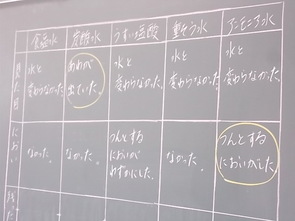 食塩水 炭酸水 うすい塩酸 重そう水 アンモニア水
見た目
水と
変わらなかった。
あわが
出ていた。
水と
変わらなかった。
水と
変わらなかった
水と
変わらなかった。
におい
なかった。
なかった。
つんとする
においが
わずかにした。
なかった。
つんとする
においがした。